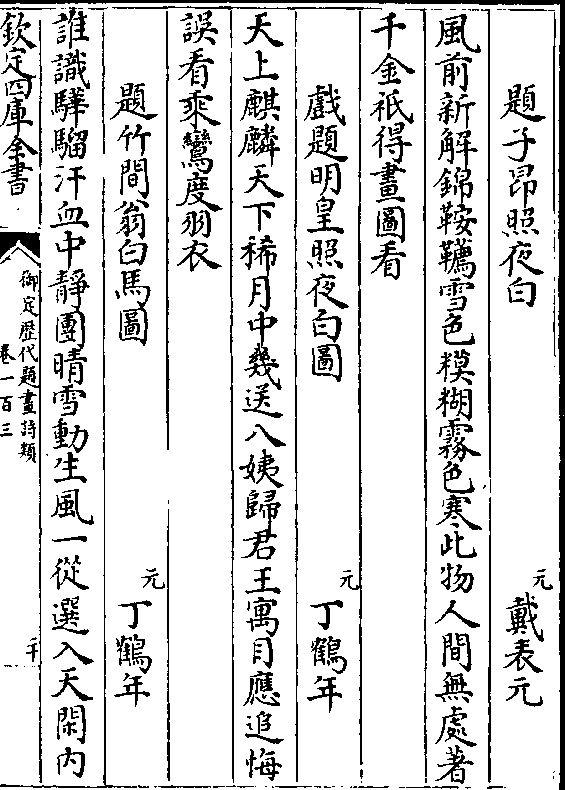 題子昂照夜白
元 戴表元
風前新解錦鞍韉雪色糢糊霧色寒此物人間無處著
千金祇得畫圖看
戲題明皇照夜白圖
元 丁鶴年
天上麒麟天下稀月中幾送八姨歸君王寓目應追悔
誤看乘鸞度羽衣
題竹間翁白馬圖
元 丁鶴年
誰識驊騮汗血中靜團晴雪動生風一從選入天閑内
欽定四庫全書
御定歴代題畫詩類
卷一百三
二十